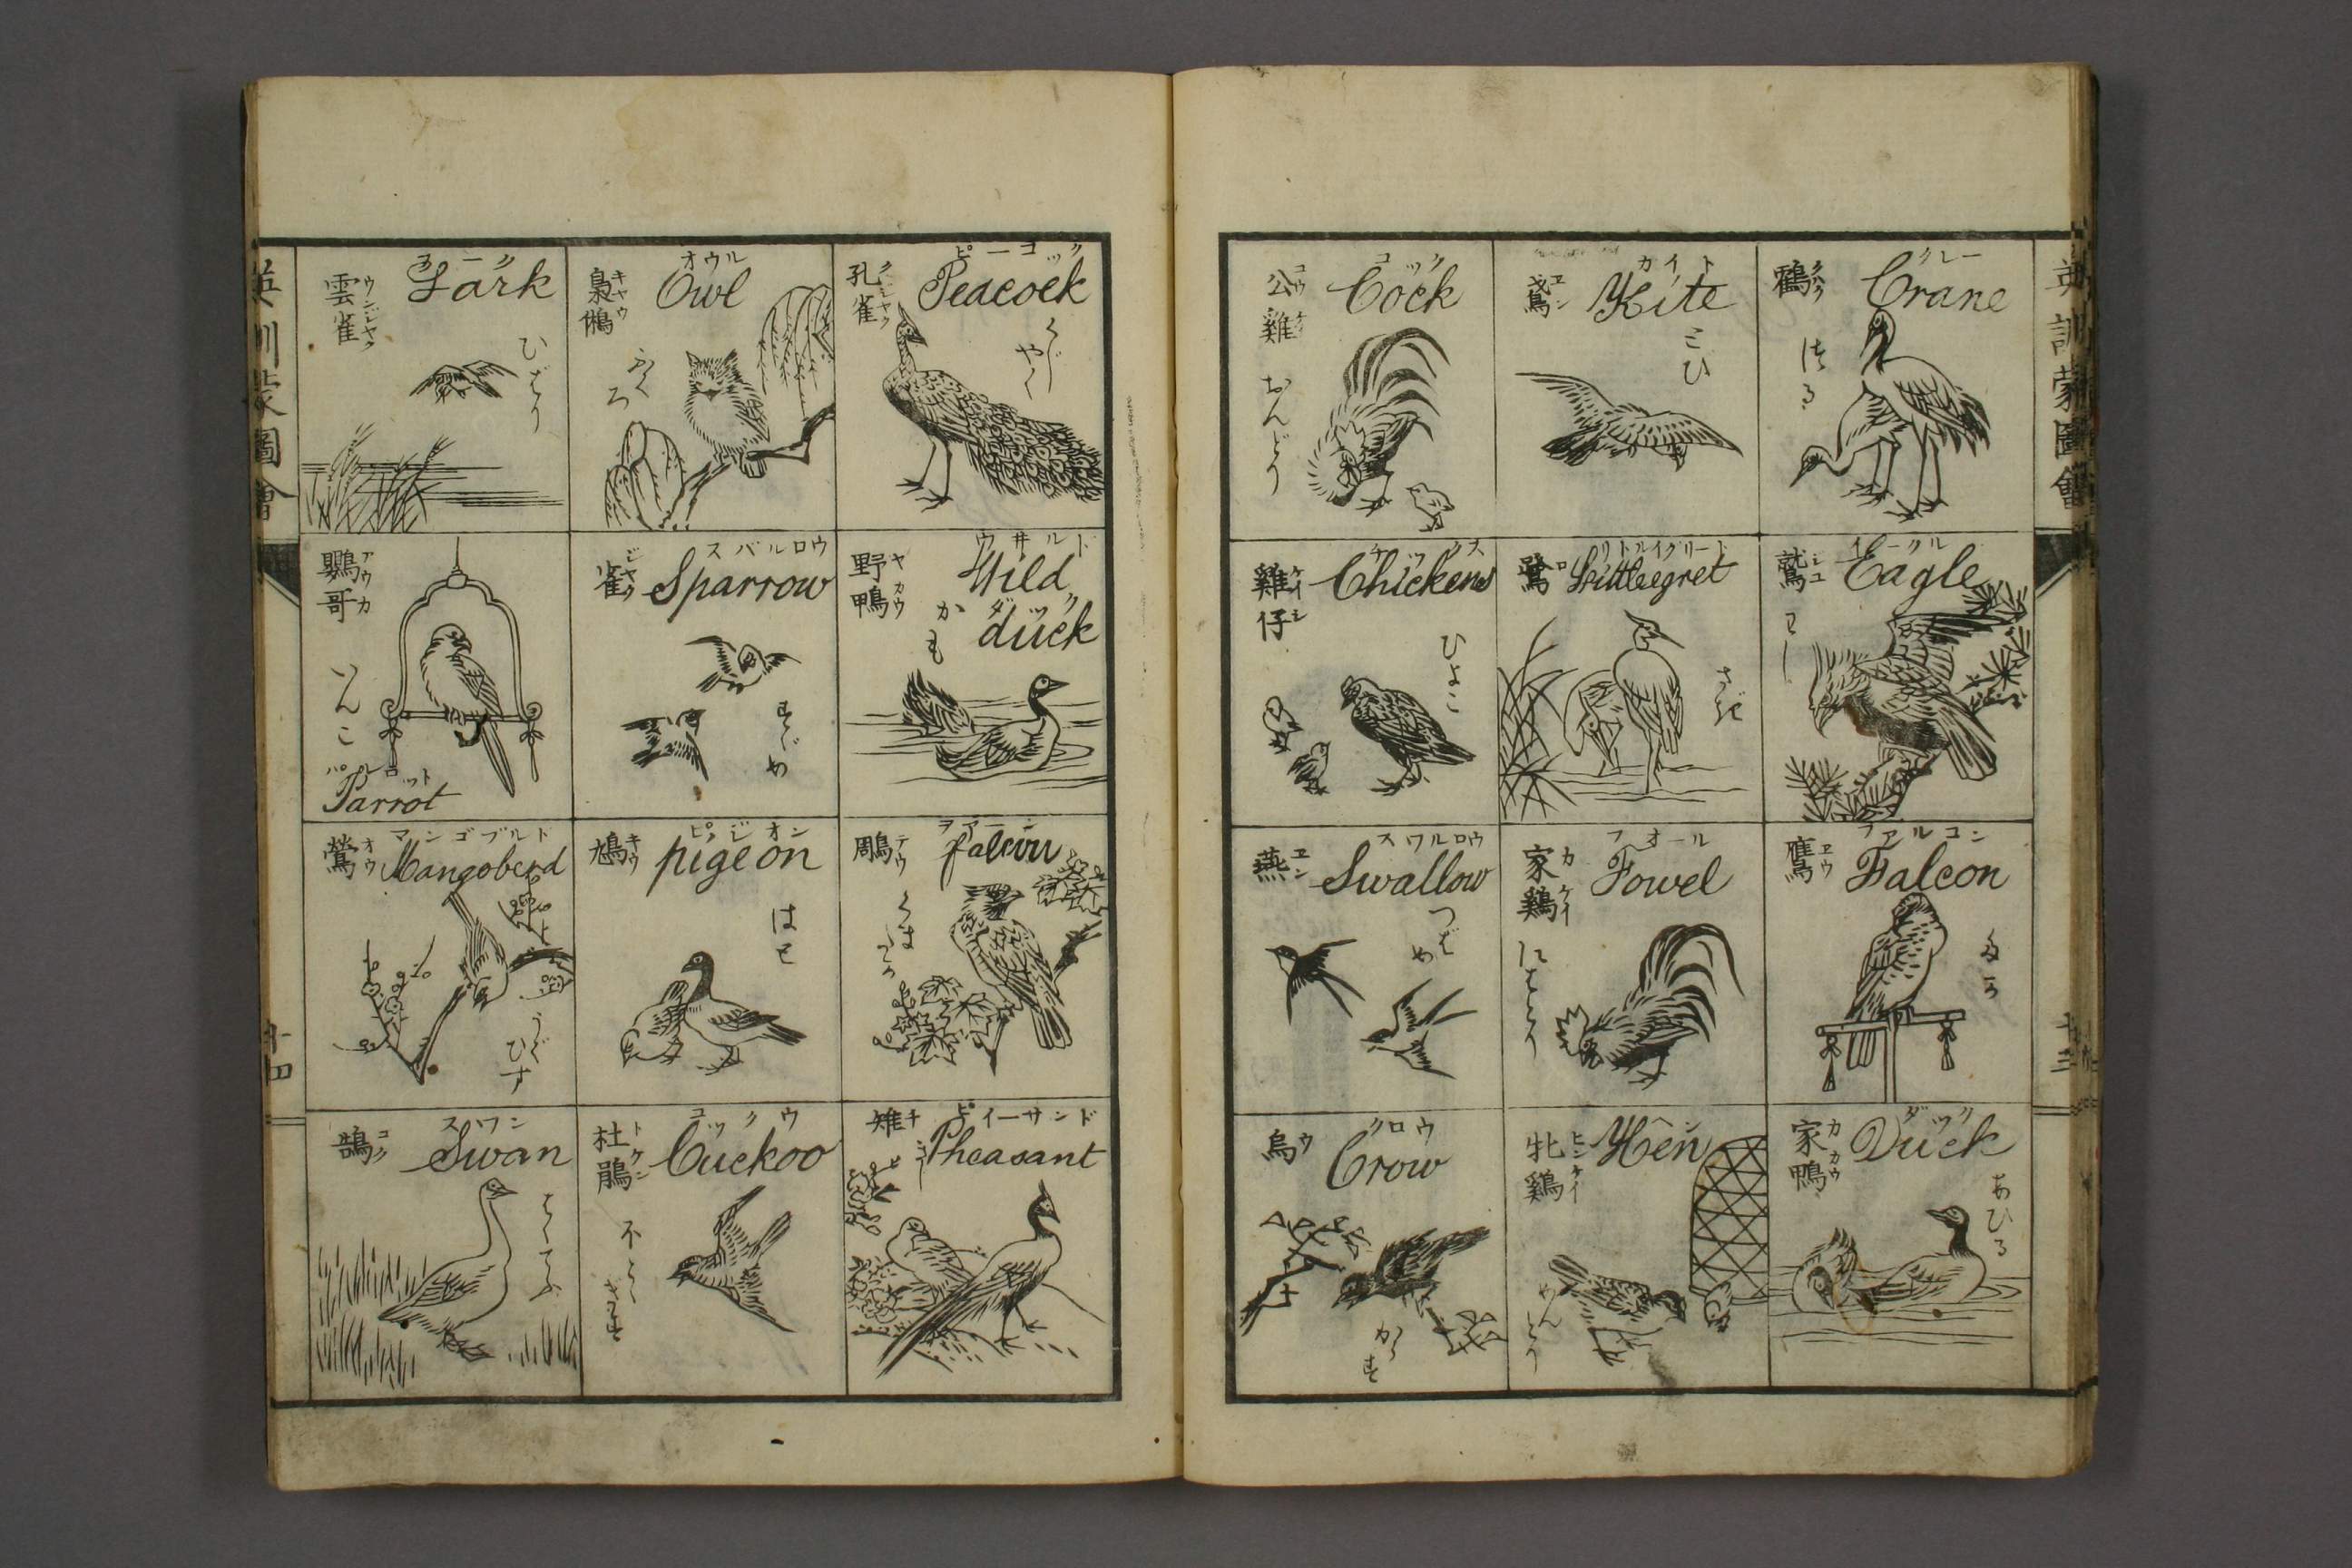 英訓蒙圖會
十三
クレー
Crane
鶴
つる
カイト
Kite
鳶
エン
とひ
コック
Cock
公雞
おんどり
イーグル
Eagle
鷲
わし
リトルイグリート
Littleegret
鷺
ロ
さぎ
チッ
Chickens
雞仔
ケイシ
ひよこ
ファルコン
Falcon
鷹
ヨウ
たか
フオール
Fowel
家鶏
カケイ
にはとり
スワルロウ
Swallow
燕
エン
つばめ
ダック
Duck
家鴨
カカウ
あひる
ヘン
Hen
牝鶏
ヒンケイ
めんとり
クロウ
Crow
烏
ウ
からす
ピーコック
Peacock
孔雀
クジャク
くじやく
オウル
Owl
梟
キャウ
ふくろ
ラーク
Lark
雲雀
ウンジャク
ひばり
ウヰルド
Wild
ダック
duck
野鴨
ヤカウ
かも
スバルロウ
Sparrow
雀
ジャク
すゞめ
鸚哥
アウカ
いんこ
パルロット
Parrot
falcon
鵰
テウ
くまたか
ピジオン
pigeon
鳩
キウ
はと
マンゴブルド
Mangoberd
鶯
オウ
うぐひす
ピイーサンド
Pheasant
雉
チ
きじ
コックウ
Cuckoo
杜鵑
トケン
スワン
Swan
鵠
コク
はくてう
英訓蒙圖會
十四